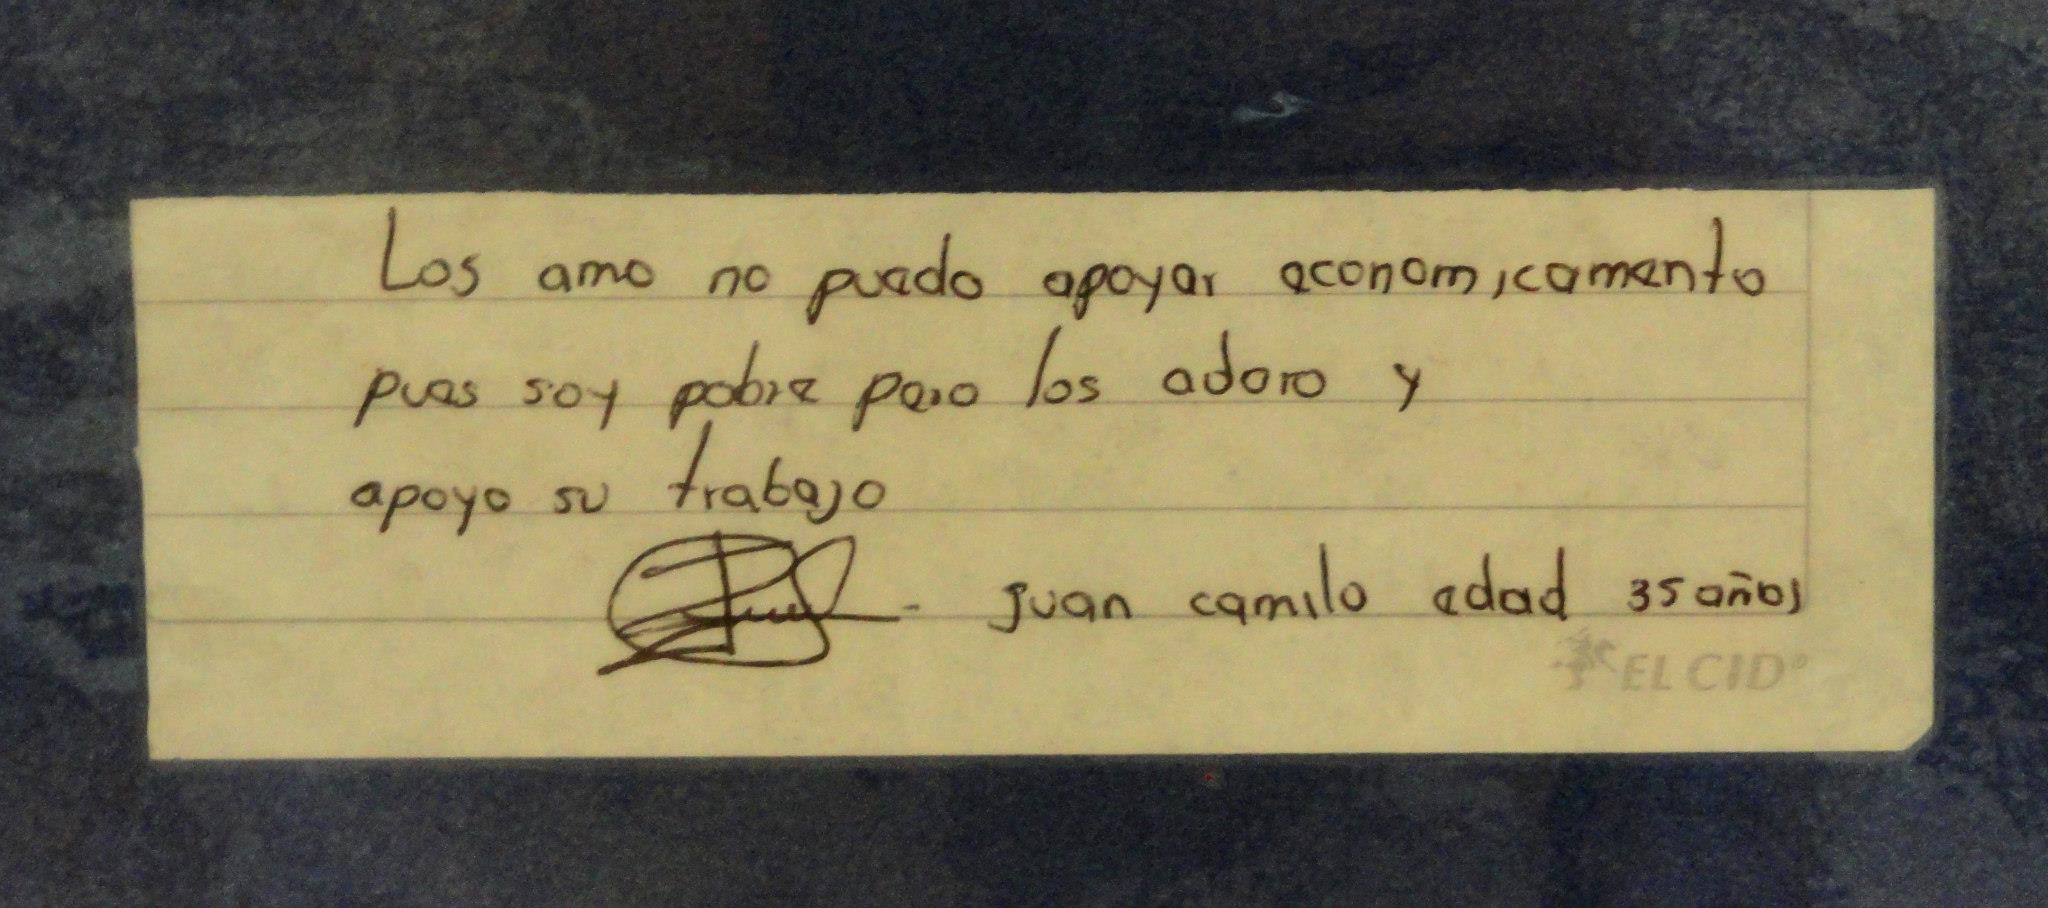 Los amo no puedo apoyar economicamente
pues soy pobre pero los adoro y
apoyo su trabajo
Juan camilo edad 35 años
EL CID®